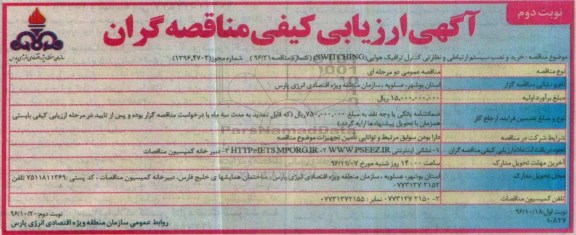 نوبت دوم
آگهی ارزیابی کیفی مناقصه گران
موضوع مناقصه : خرید و نصب سیستم ارتباطی و نظارتی کنترل ترافیک هوایی (SWITCHING) (تکسازه/مناقصه ۹۶/۳۱) شماره مجوز (۱۳۹۶،۴۷۰۳)
نوع مناقصه مناقصه عمومی دو مرحله ای
نام و نشانی مناقصه گزار استان بوشهر، عسلویه ، سازمان منطقه ویژه اقتصادی انرژی پارس
مبلغ برآورد اولیه ۱۵,۰۰۰,۰۰۰,۰۰۰ ریال
نوع و مبلغ تضمین فرآیند ارجاع کار ضمانتنامه بانکی یا وجه نقد به مبلغ ۷۵۰,۰۰۰,۰۰۰ ریال (که قابل تمدید به مدت سه ماه با درخواست مناقصه گزار بوده و پس از تایید در مرحله ارزیابی کیفی بایستی همزمان با تحویل پیشنهادها ارایه گردد)
شرایط شرکت در مناقصه دارا بودن سوابق مرتبط و توانایی تامین تجهیزات موضوع مناقصه
۱- نشانی اینترنتی WWW.PSEEZ.IR ۲- HTTP://IETS.MPORG.IR ۳- دبیرخانه کمیسیون مناقصات
آخرین مهلت تحویل مدارک ساعت ۱۴:۰۰ روز شنبه مورخ ۹۶/۱۱/۰۷
محل تحویل مدارک استان بوشهر، عسلویه ، سازمان منطقه ویژه اقتصادی انرژی پارس ، ساختمان همایشهای خلیج فارس، دبیرخانه کمیسیون مناقصات ، کد پستی ۷۵۱۱۸۱۱۳۶۹ تلفن ۰۷۷۳۱۳۷ ۲۱۵۲
تلفن کمیسیون مناقصات ۲-۲۱۵۰ ۰۷۷۳۱۳۷ نمابر : ۰۷۷۳۱۳۷۲۱۵۵
نوبت اول: ۹۶/۱۰/۱۸ نوبت دوم: ۹۶/۱۰/۲۰
۱۰۸۲۷ روابط عمومی سازمان منطقه ویژه اقتصادی انرژی پارس